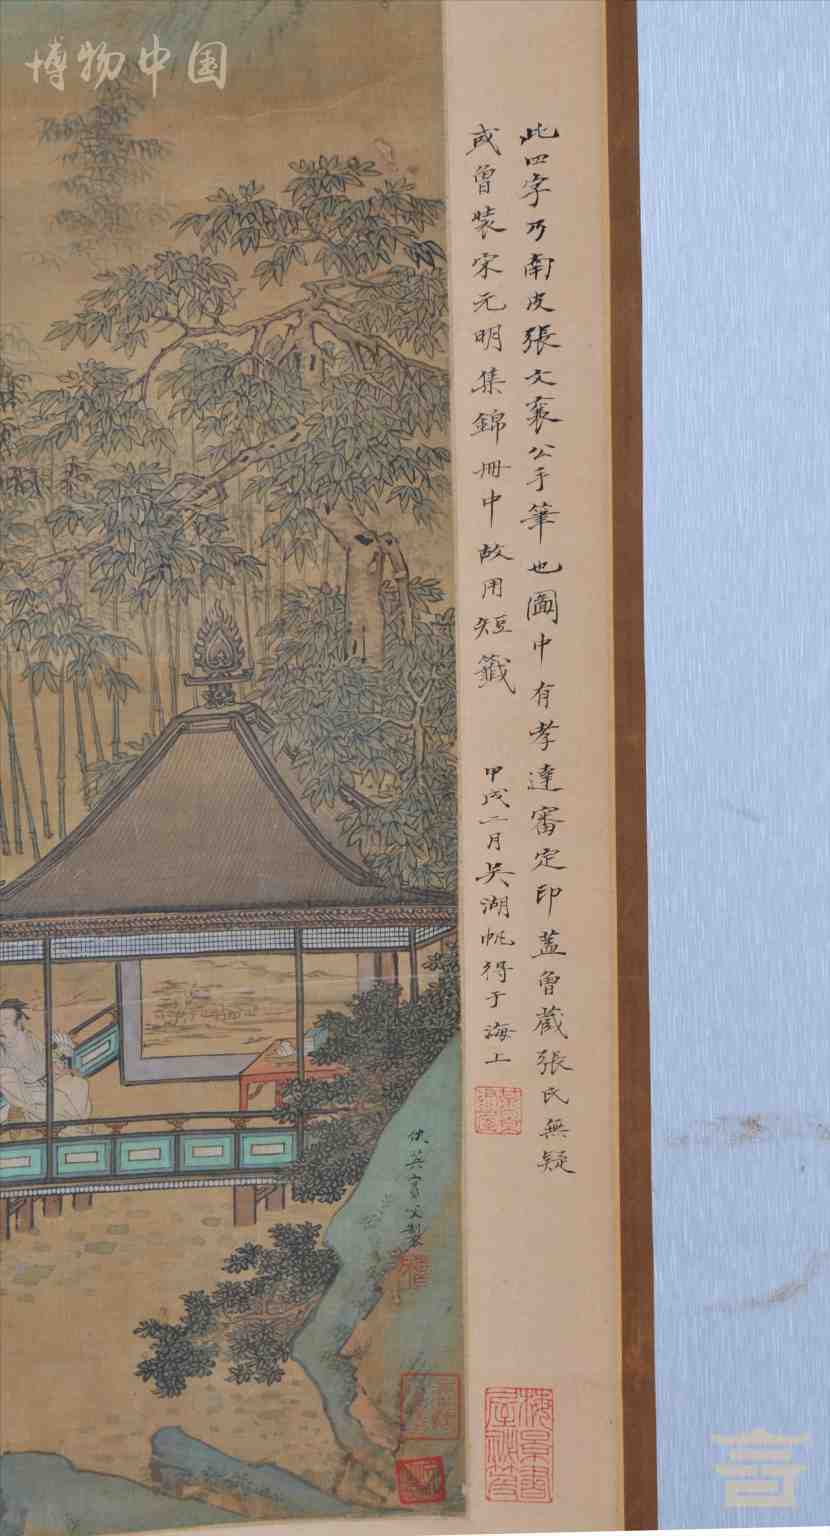 博物中国
此四字乃南皮張文襄公手筆也圖中有孝達審定印蓋曾藏張氏無疑
或曾裝宋元明集錦冊中故用短籤
甲戌二月吳湖帆得于海上
仇英實父製
梅景書屋祕笈